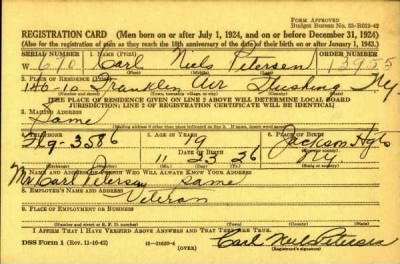 FORM APPROVED
Budget Bureau No. 33-R012-42
REGISTRATION CARD (Men born on or after July 1, 1924, and on or before December 31, 1924)
(Also for the registration of men as they reach the 18th anniversary of the date of their birth on or after January 1, 1943.)
SERIAL NUMBER 1. NAME (Print) ORDER NUMBER
W 670 Carl Niels Petersen 13955
(First) (Middle) (Last)
2. PLACE OF RESIDENCE (Print)
140-10 Franklin Ave Flushing NY.
(Number and street) (Town, township, village, or city) (County) (State)
[THE PLACE OF RESIDENCE GIVEN ON LINE 2 ABOVE WILL DETERMINE LOCAL BOARD
JURISDICTION; LINE 2 OF REGISTRATION CERTIFICATE WILL BE IDENTICAL]
3. MAILING ADDRESS
Same
[Mailing address if other than place indicated on line 2. If same, insert word same]
4. TELEPHONE 5. AGE IN YEARS 6. PLACE OF BIRTH
Flg-3586 19 Jackson Hgts
DATE OF BIRTH
11 23 26 NY.
(Mo.) (Day) (Yr.)
7. NAME AND ADDRESS OF PERSON WHO WILL ALWAYS KNOW YOUR ADDRESS
Mr Carl Petersen same
8. EMPLOYER'S NAME AND ADDRESS
Veteran
9. PLACE OF EMPLOYMENT OR BUSINESS
(Number and street or R. F. D. number) (Town) (County) (State)
I AFFIRM THAT I HAVE VERIFIED ABOVE ANSWERS AND THAT THEY ARE TRUE.
DSS Form 1 (Rev. 11-16-42) (OVER) Carl Niels Petersen
(Registrant's signature)